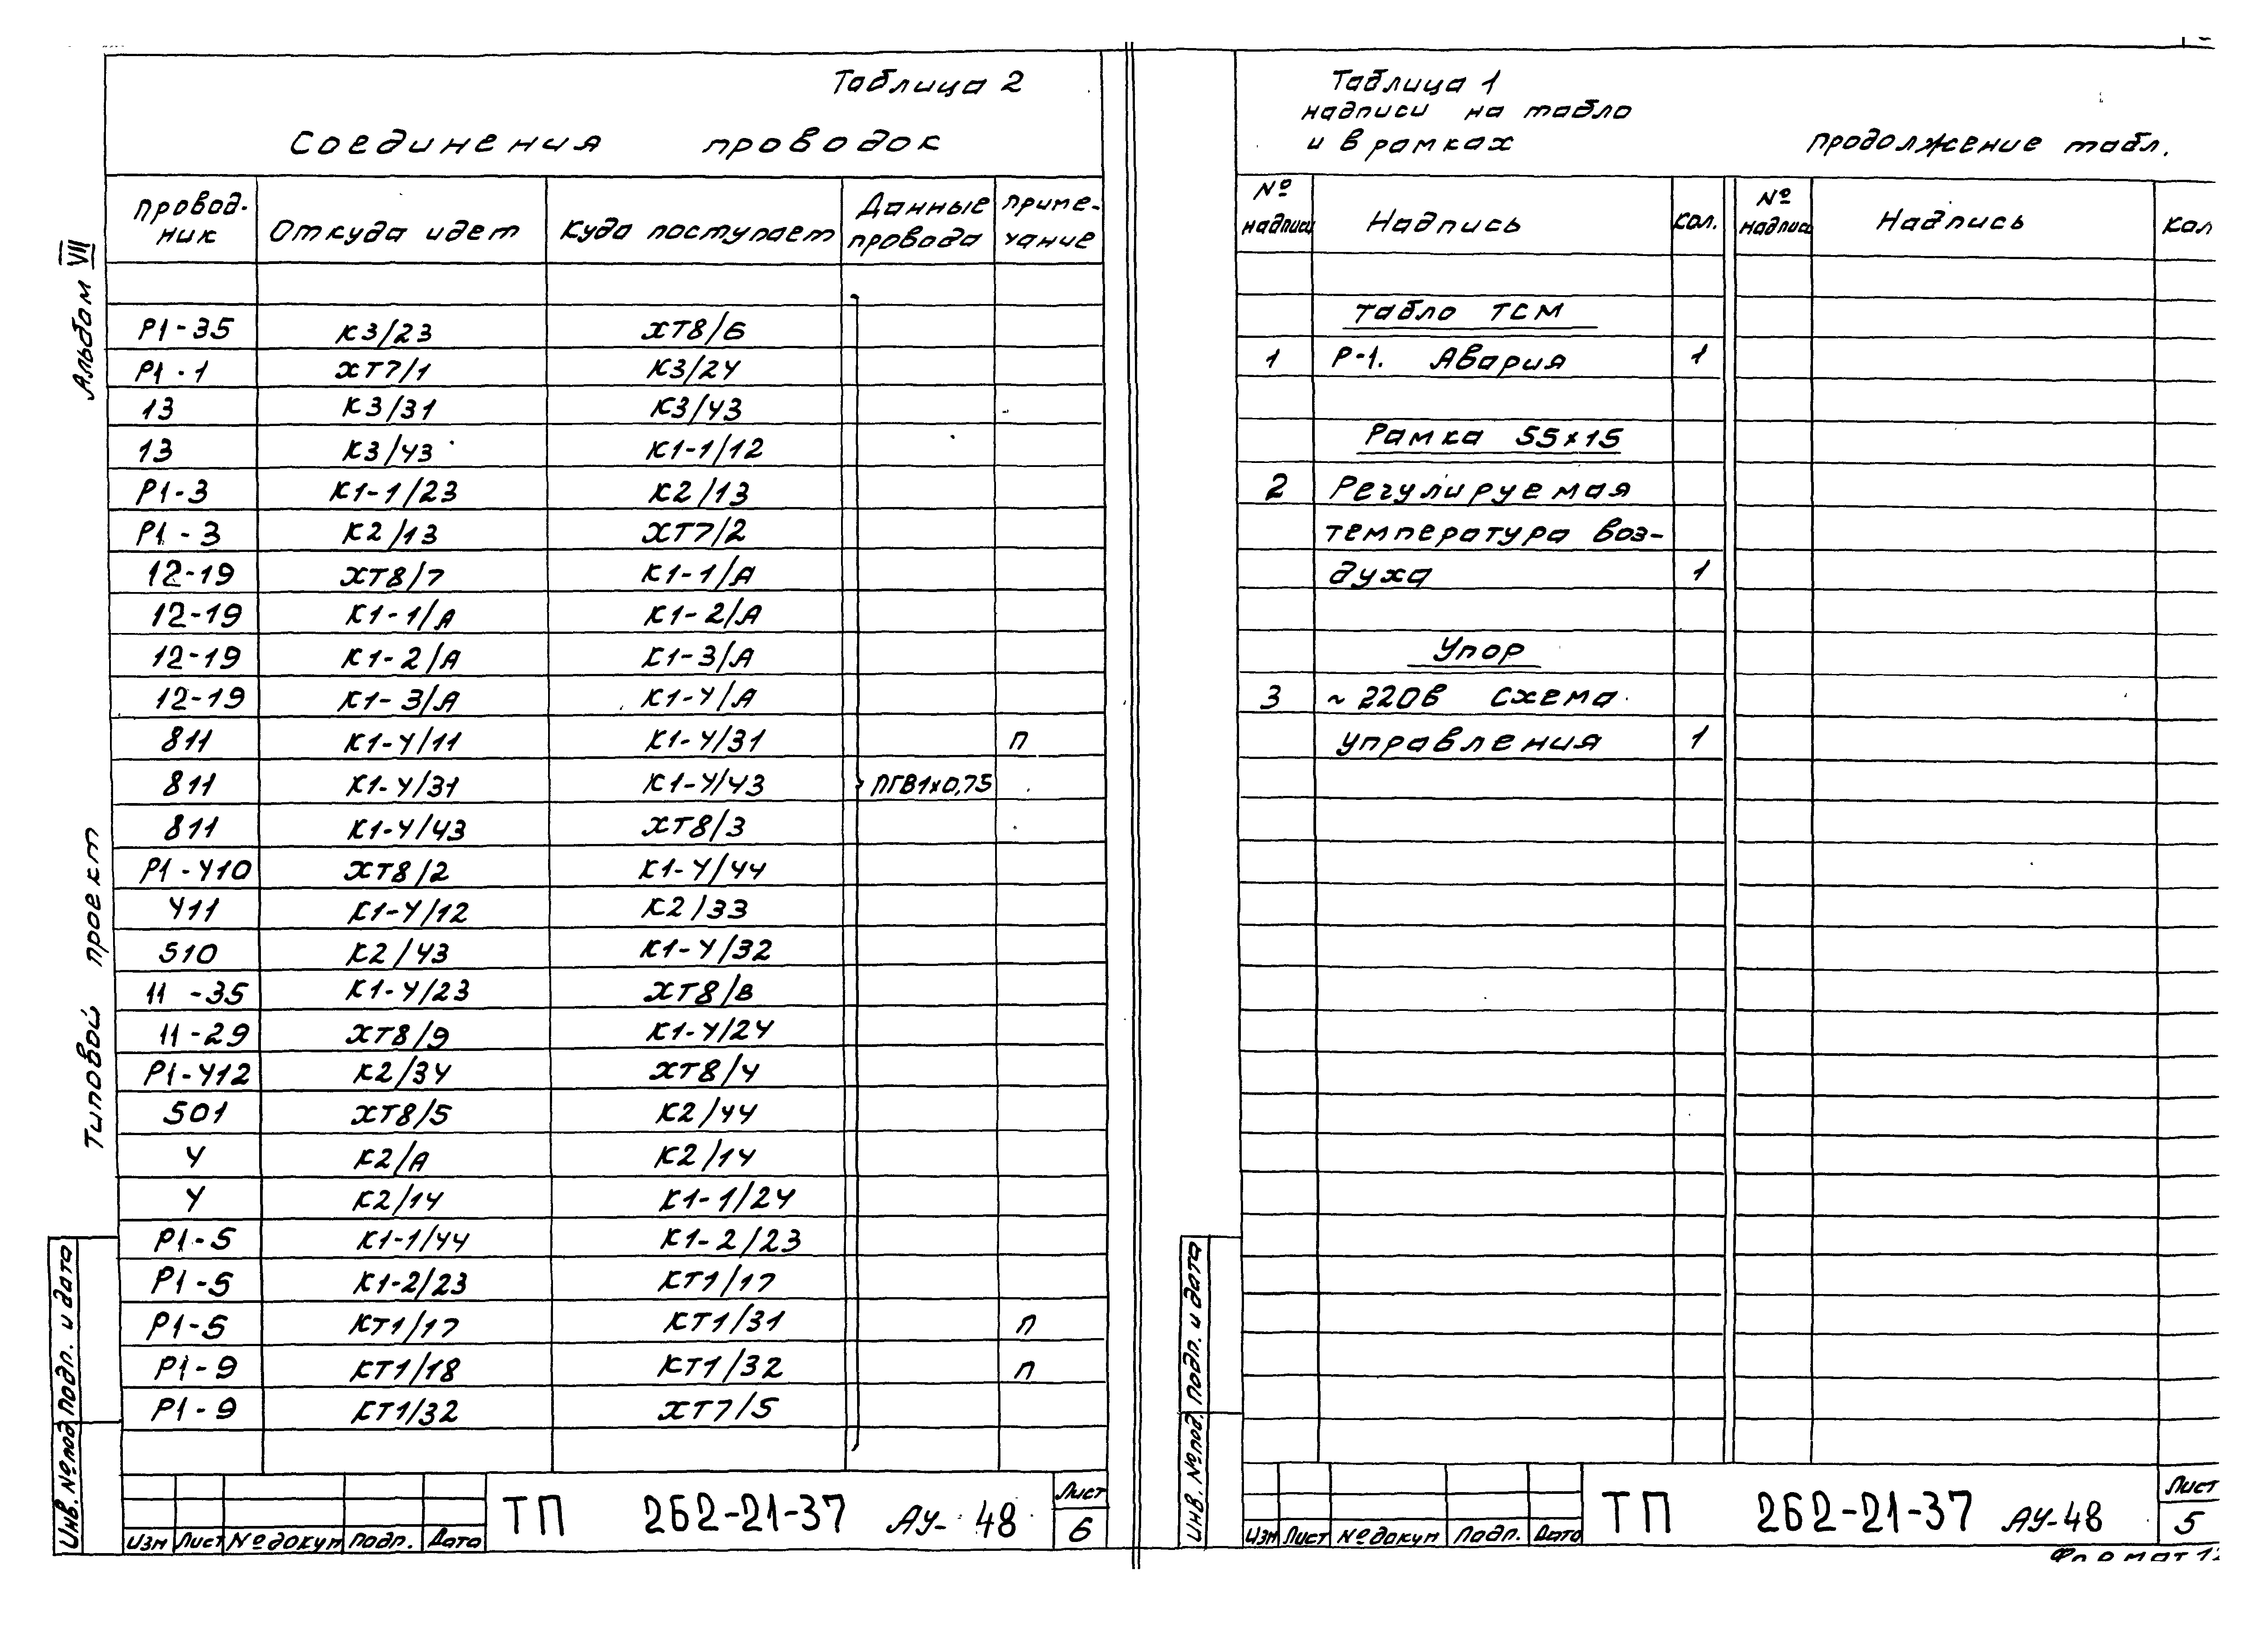 Таблица 2
Соединения проводок
Провод- Откуда идет Куда поступает Данные Приме-
ник провода чание
Р1-35 К3/23 ХТ8/6
Р1-1 ХТ7/1 К3/24
13 К3/31 К3/43
13 К3/43 К1-1/12
Р1-3 К1-1/23 К2/13
Р1-3 К2/13 ХТ7/2
12-19 ХТ8/7 К1-1/А
12-19 К1-1/А К1-2/А
12-19 К1-2/А К1-3/А
12-19 К1-3/А К1-4/А
811 К1-4/11 К1-4/31 п
811 К1-4/31 К1-4/43 ПГВ1х0,75
811 К1-4/43 ХТ8/3
Р1-410 ХТ8/2 К1-4/44
411 К1-4/12 К2/33
510 К2/43 К1-4/32
11-35 К1-4/23 ХТ8/8
11-29 ХТ8/9 К1-4/24
Р1-412 К2/34 ХТ8/4
501 ХТ8/5 К2/44
4 К2/А К2/14
4 К2/14 К1-1/24
Р1-5 К1-1/44 К1-2/23
Р1-5 К1-2/23 КТ1/17
Р1-5 КТ1/17 КТ1/31 п
Р1-9 КТ1/18 КТ1/32 п
Р1-9 КТ1/32 ХТ7/5
Альбом VII
Типовой проект
Инв. №подл. Подп. и дата
Изм Лист №докум Подп. Дата
ТП 262-21-37 АУ-48
Лист
6
Таблица 1
надписи на табло
и в рамках
Продолжение табл.
№ надписи Надпись кол. № надписи Надпись кол
Табло ТСМ
1 Р-1. Авария 1
Рамка 55х15
2 Регулируемая
температура воз-
духа 1
Упор
3 ~220в схема
управления 1
Инв. №подл. Подп. и дата
Изм Лист №докум Подп. Дата
ТП 262-21-37 АУ-48
Лист
5
Формат 12